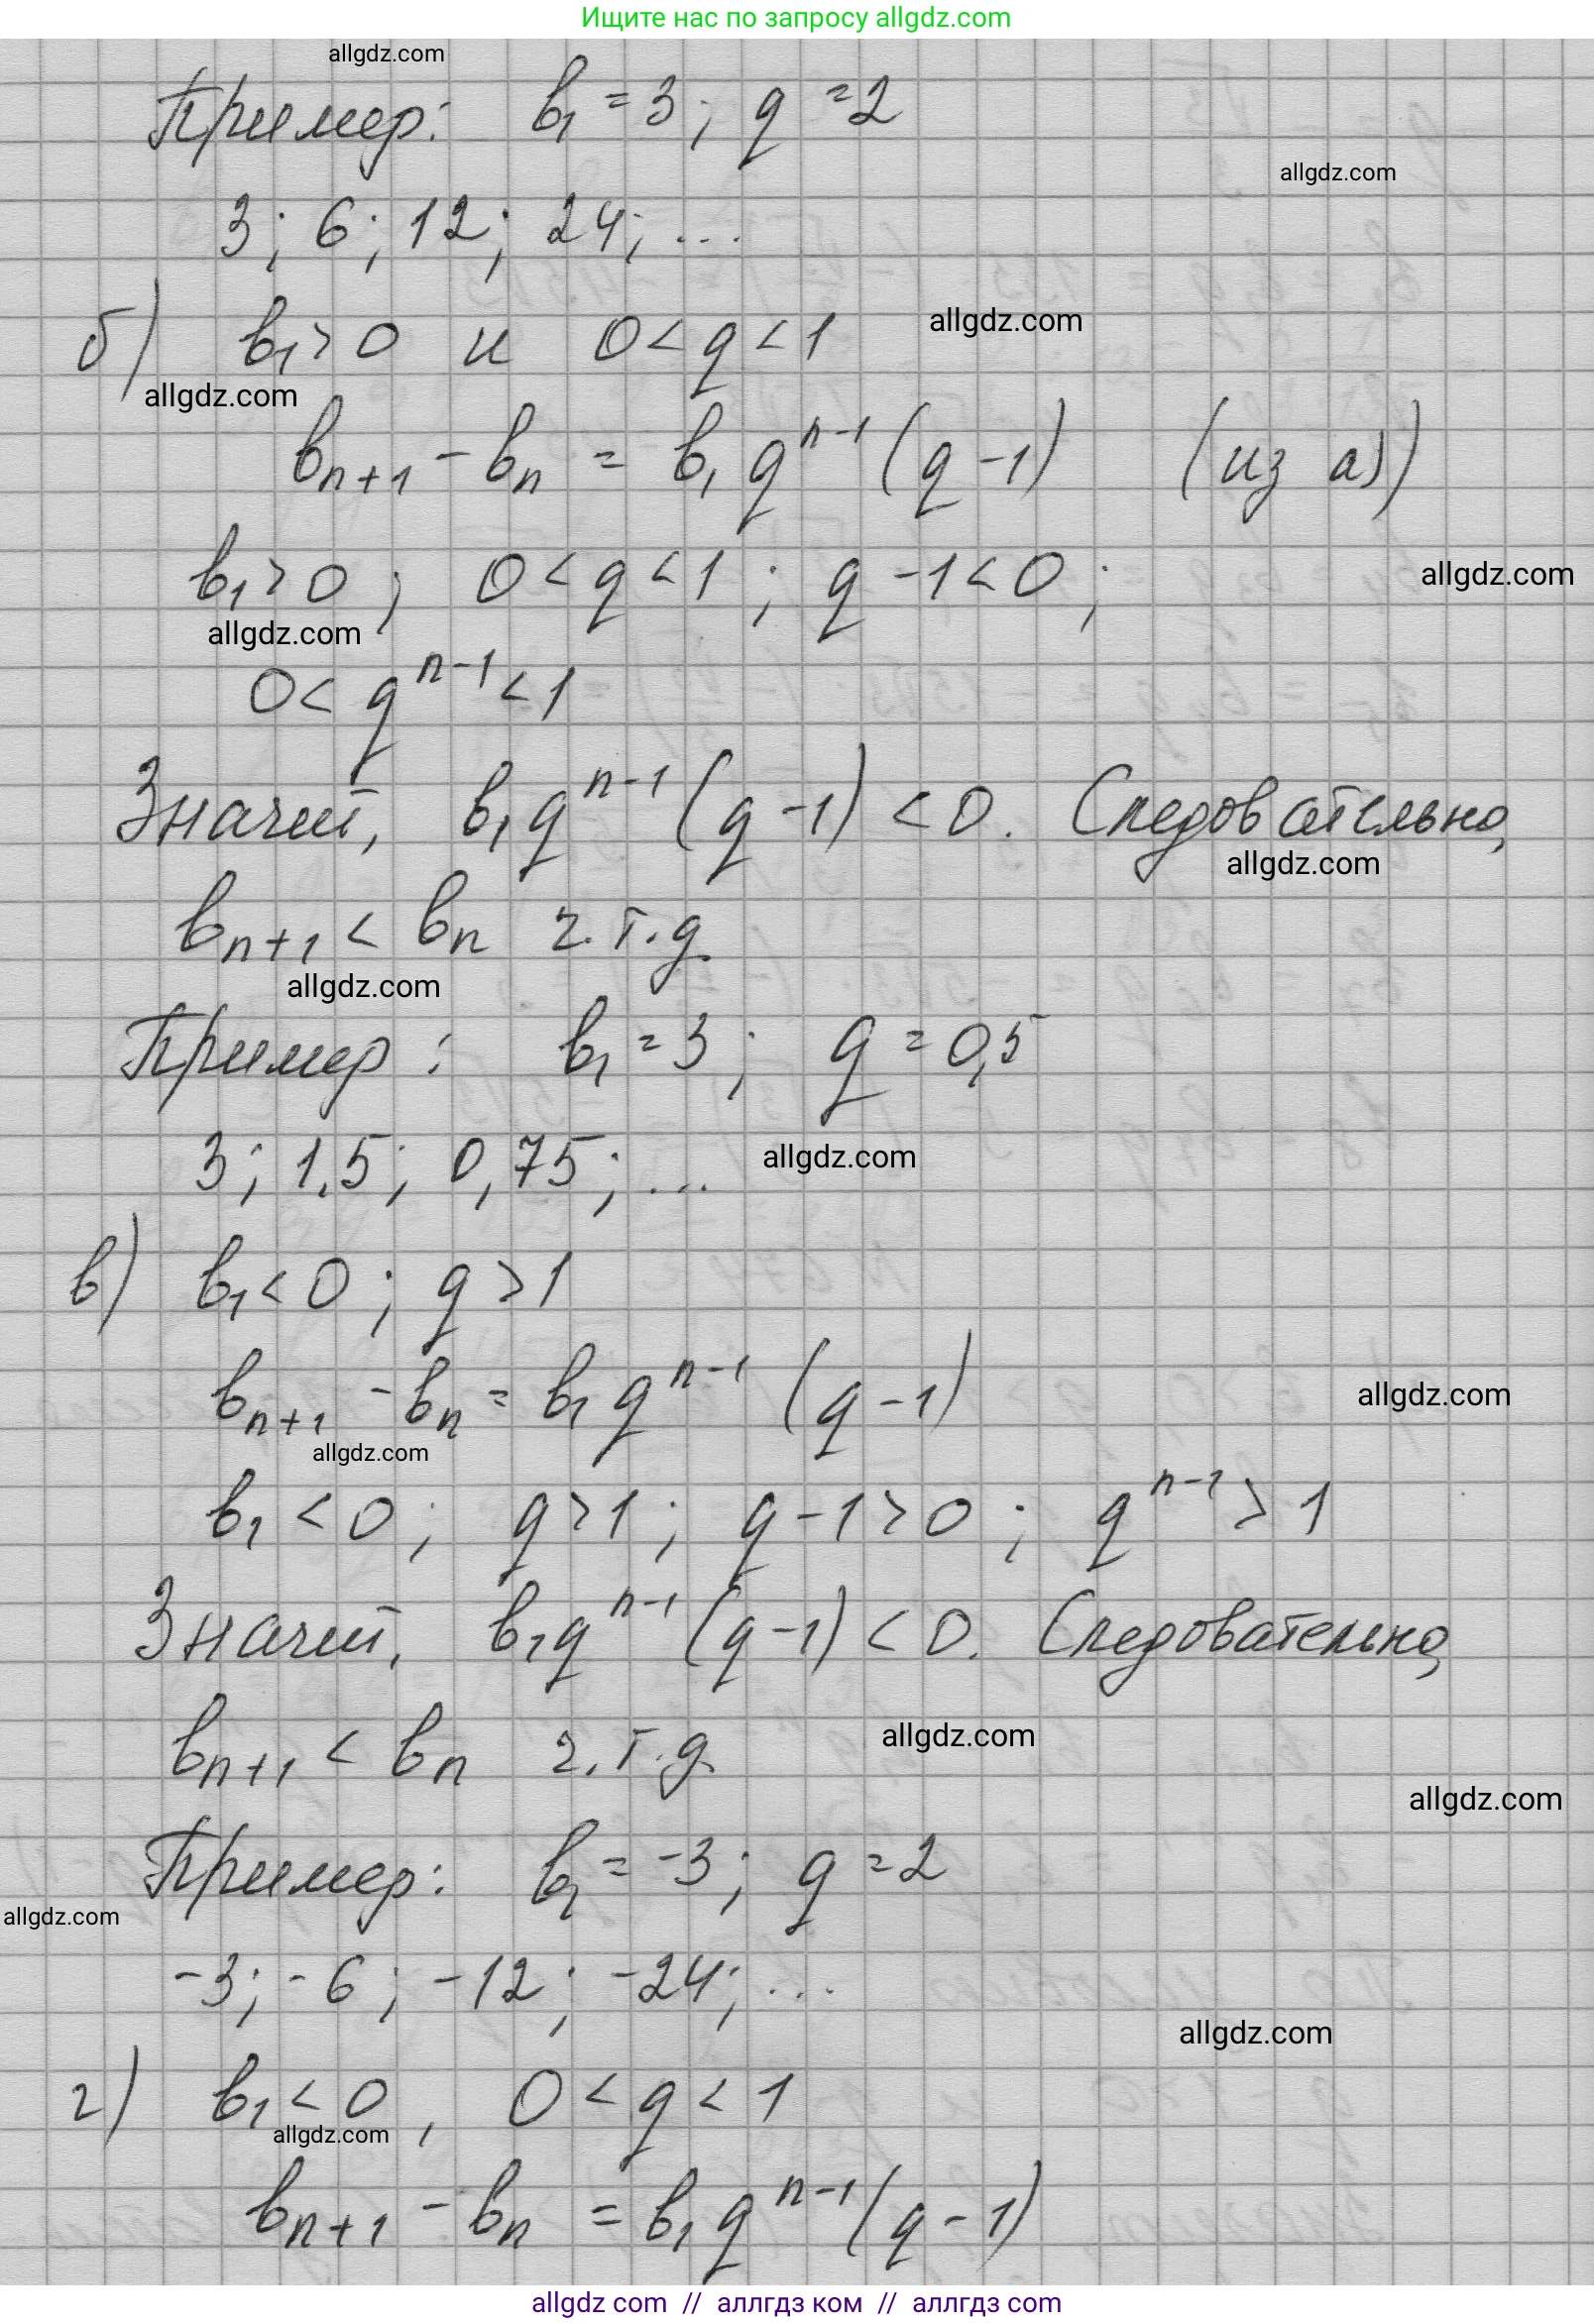 Ищите нас по запросу allgdz.com
allgdz.com
Пример: b₁ = 3; q = 2
allgdz.com
3; 6; 12; 24; ...
б) b₁ > 0 и 0 < q < 1
allgdz.com
allgdz.com
bₙ₊₁ - bₙ = b₁ qⁿ⁻¹ (q - 1) (из а))
b₁ > 0; 0 < q < 1; q - 1 < 0;
allgdz.com
allgdz.com
0 < qⁿ⁻¹ < 1
Значит, b₁ qⁿ⁻¹ (q - 1) < 0. Следовательно,
allgdz.com
bₙ₊₁ < bₙ ч.т.д.
allgdz.com
Пример: b₁ = 3; q = 0,5
3; 1,5; 0,75; ...
allgdz.com
в) b₁ < 0; q > 1
bₙ₊₁ - bₙ = b₁ qⁿ⁻¹ (q - 1)
allgdz.com
allgdz.com
b₁ < 0; q > 1; q - 1 > 0; qⁿ⁻¹ > 1
Значит, b₁ qⁿ⁻¹ (q - 1) < 0. Следовательно,
bₙ₊₁ < bₙ ч.т.д.
allgdz.com
allgdz.com
Пример: b₁ = -3; q = 2
allgdz.com
-3; -6; -12; -24; ...
allgdz.com
г) b₁ < 0, 0 < q < 1
allgdz.com
bₙ₊₁ - bₙ = b₁ qⁿ⁻¹ (q - 1)
allgdz.com // аллгдз ком // аллгдз com